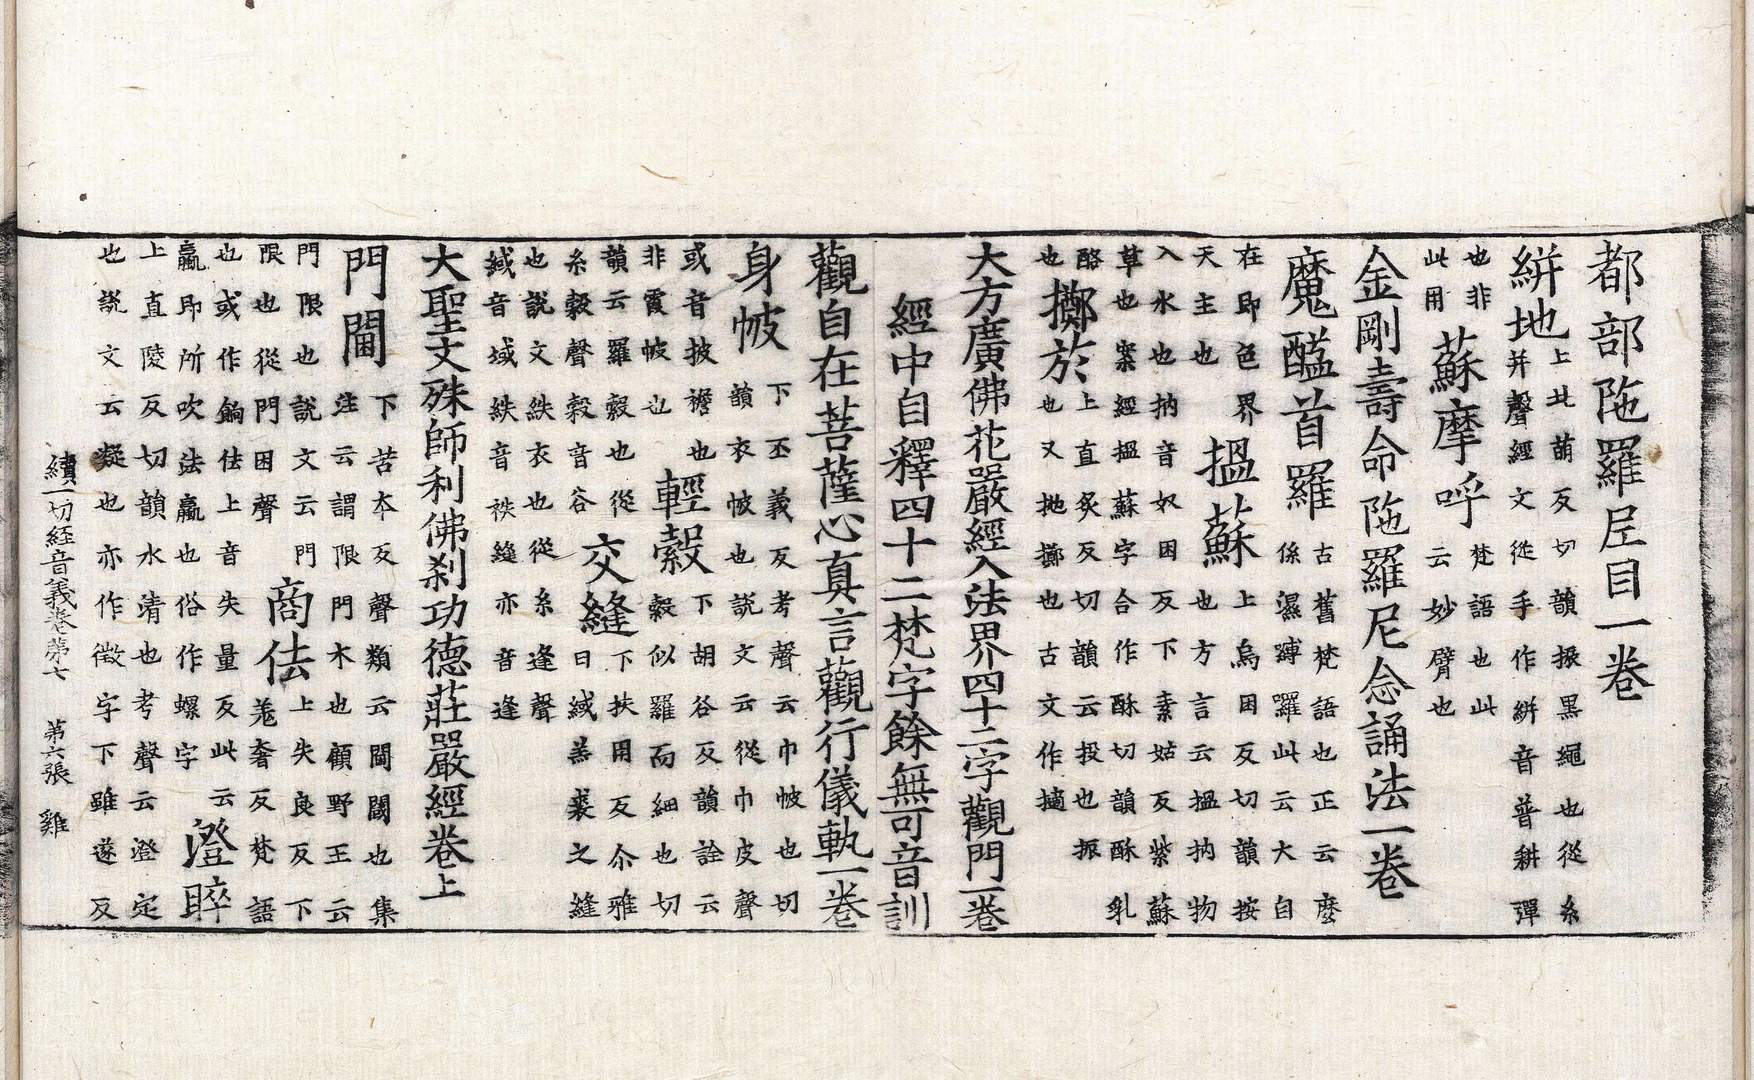 都部陁羅尼目一卷
絣地
上北萌反切韻振黑繩也從糸
并聲經文從手作絣音普耕彈
也非
此用
蘇摩呼
梵語也此
云妙臂也
金剛壽命陁羅尼念誦法一卷
魔醯首羅
古舊梵語也正云麼
係濕嚩羅此云大自
在即色界
天主也
搵蘇
上烏困反切韻按
也方言云搵抐物
入水也抐音奴困反下素姑反紫蘇
草也案經搵蘇字合作酥切韻酥乳
酪
也
擲於
上直炙反切韻云投也振
也又抛擲也古文作擿
大方廣佛花嚴經入法界四十二字觀門一卷
經中自釋四十二梵字餘無可音訓
觀自在菩薩心真言觀行儀軌一卷
身帔
下丕義反考聲云巾帔也切
韻衣帔也說文云從巾皮聲
或音披襜也
非霞帔也
輕縠
下胡谷反韻詮云
縠似羅而細也切
韻云羅縠也從
糸㲉聲㲉音谷
交縫
下扶用反尒雅
曰緎羔裘之縫
也說文紩衣也從糸逢聲
緎音域紩音袟縫亦音逢
大聖文殊師利佛刹功德莊嚴經卷上
門閫
下苦本反聲類云閫閾也集
注云謂限門木也顧野王云
門限也說文云門
限也從門困聲
商佉
上失良反下
羗奢反梵語
也或作餉佉上音失量反此云
蠃即所吹法蠃也俗作螺字
澄睟
上直陵反切韻水清也考聲云澄定
也說文云凝也亦作徵字下雖遂反
續一切経音義卷苐七 苐六張 雞